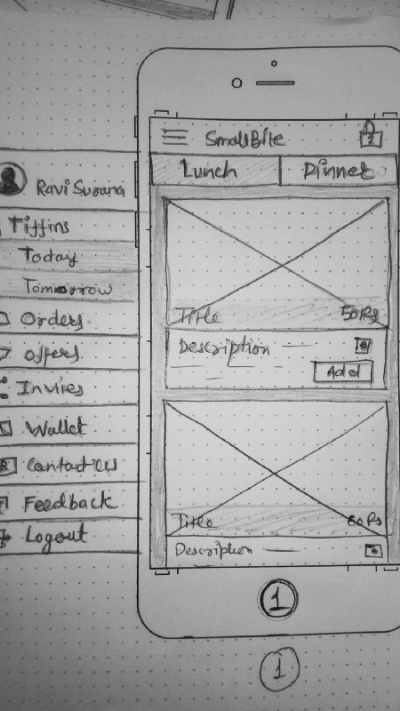 Ravi Surana
Tiffins
Today
Tomorrow
Orders
offers
Invies
Wallet
Contact us
Feedback
Logout
SmallBite
Lunch
Dinner
Title
50Rs
Description
Add
Title
60Rs
Description
1
1